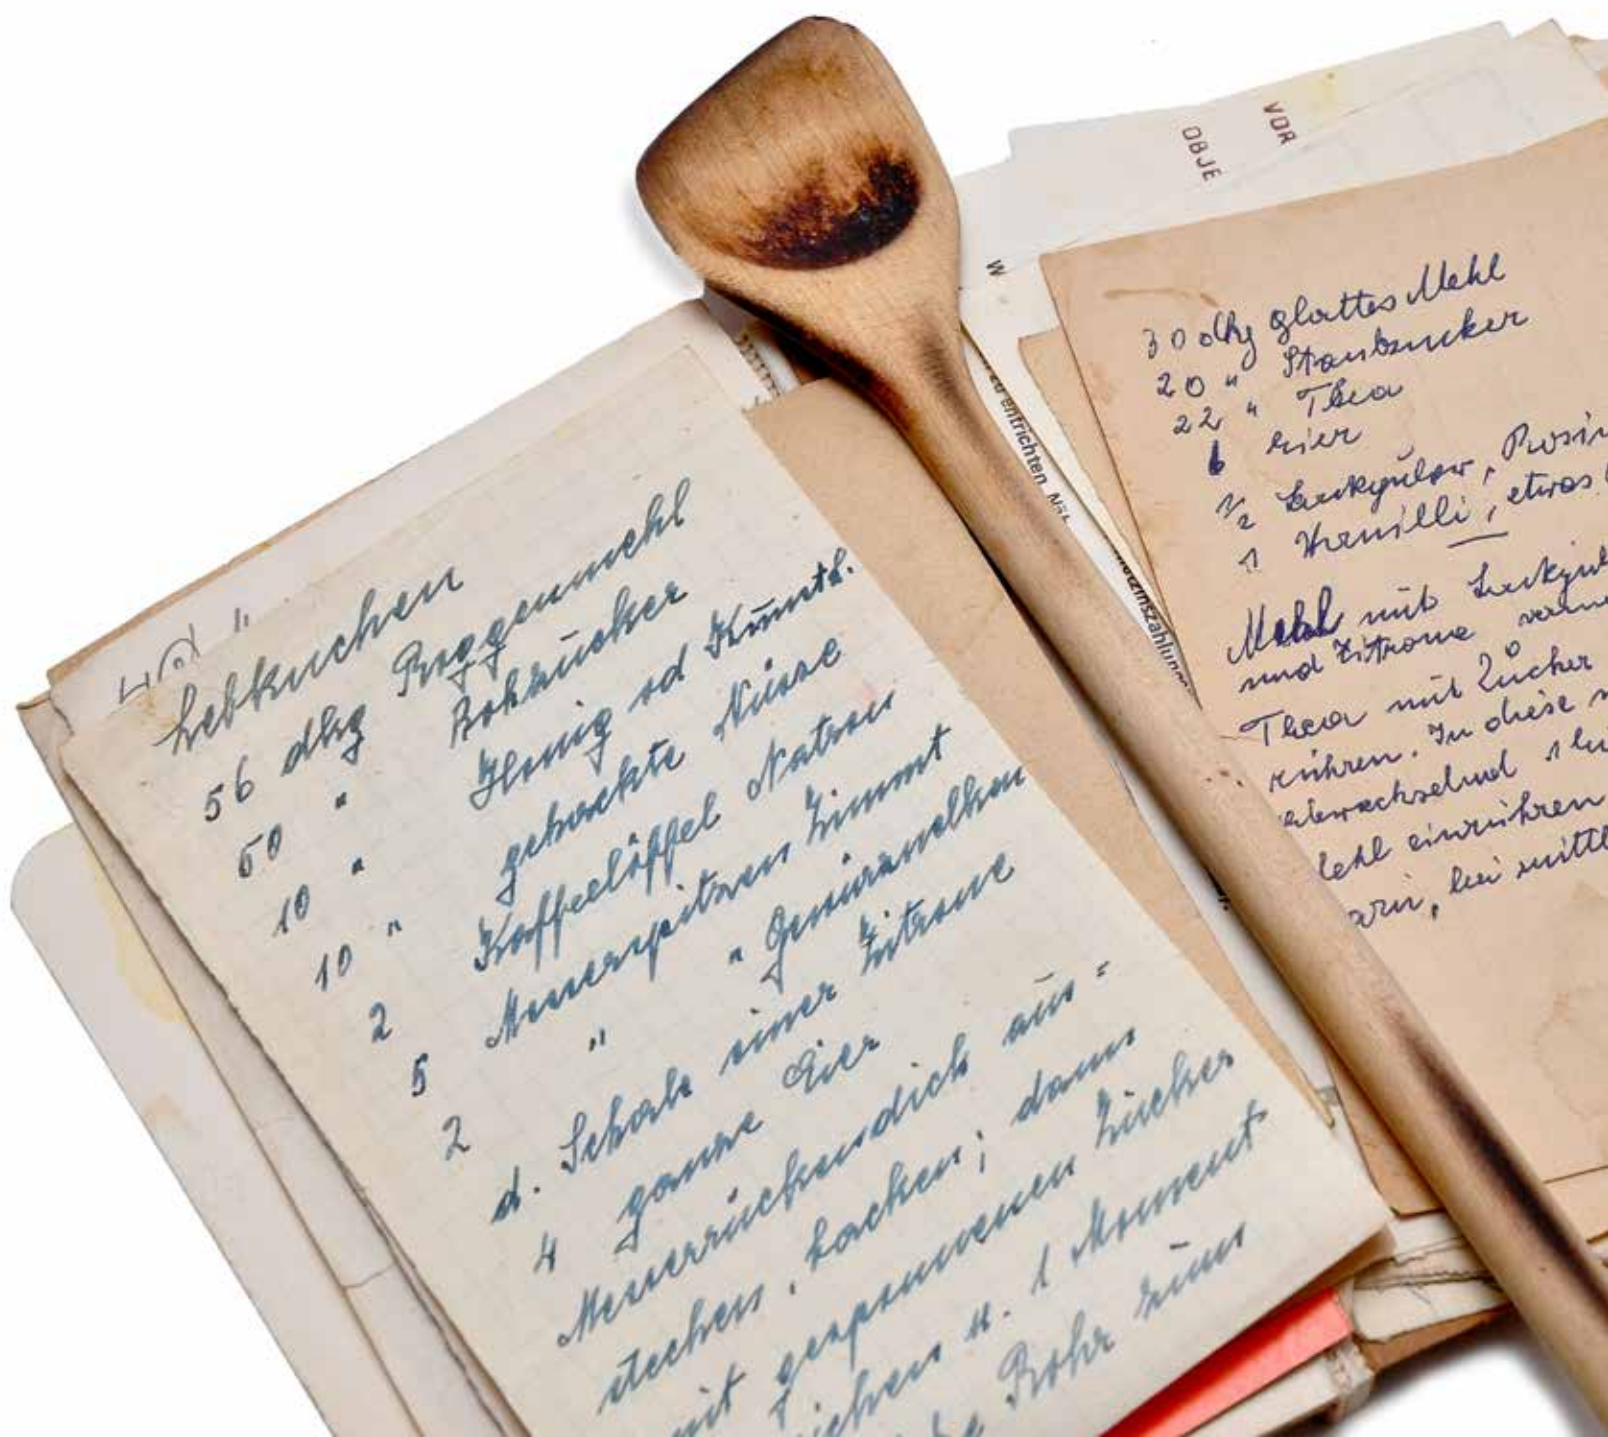 Lebkuchen
56 dkg Roggenmehl
50 " Rohzucker
10 " Honig od Kunsth.
10 " gehackte Nüsse
2 Kaffeelöffel Natron
5 Messerspitzen Zimmt
2 " " Gewürznelken
d. Schale einer Zitrone
4 ganze Eier
Messerrückendick aus=
stechen, backen; dann
mit gesponnenen Zucker
ichen u. 1 Moment
Rohr zum
30 dkg glattes Mehl
20 " Staubzucker
22 " Thea
6 Eier
1/2 Backpulver, Rosin
1 Vanilli, etwas
Mehl mit Backpul
und Zitrone verm
Thea mit Zucker
rühren. In diese
abwechselnd 1 Ei
Mehl einrühren
bei mittl
VOR
OBJE
W
zu entrichten